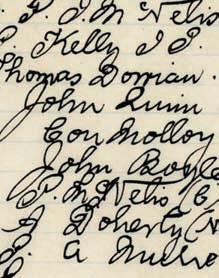 P. J. McNelis
Kelly J P.
Thomas Dorrian
John Quinn
Con Molloy
John Boyle
P. McNelis (
J Doherty (
P. A